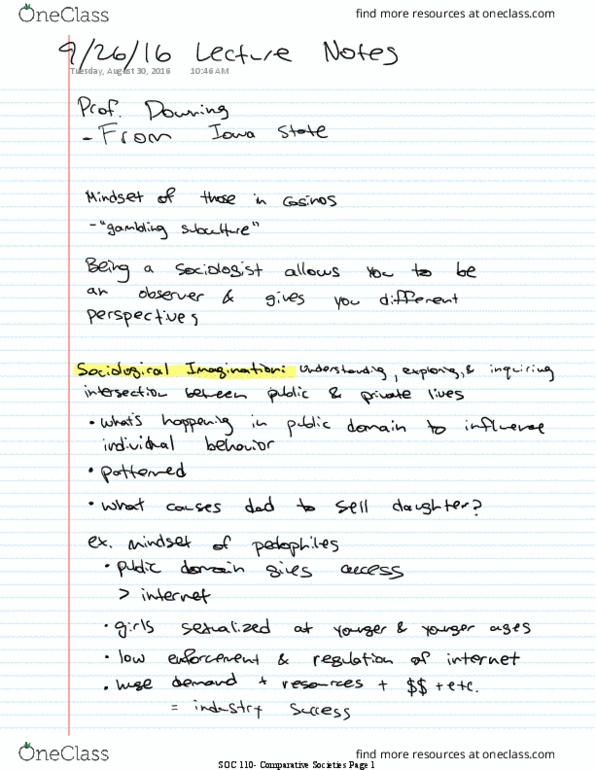 OneClass find more resources at oneclass.com
9/26/16 Lecture Notes
Tuesday, August 30, 2016 10:46 AM
Prof. Downing
- From Iowa State
Mindset of those in Casinos
- "gambling subculture"
Being a sociologist allows you to be
an observer & gives you different
perspectives
Sociological Imagination: understanding, exploring, & inquiring
intersection between public & private lives
• what's happening in public domain to influence
individual behavior
• patterned
• what causes dad to sell daughter?
ex. mindset of pedophiles
• public domain gives access
> internet
• girls sexualized at younger & younger ages
• low enforcement & regulation of internet
• huge demand + resources + $$ + etc.
= industry success
OneClass find more resources at oneclass.com
SOC 110- Comparative Societies Page 1